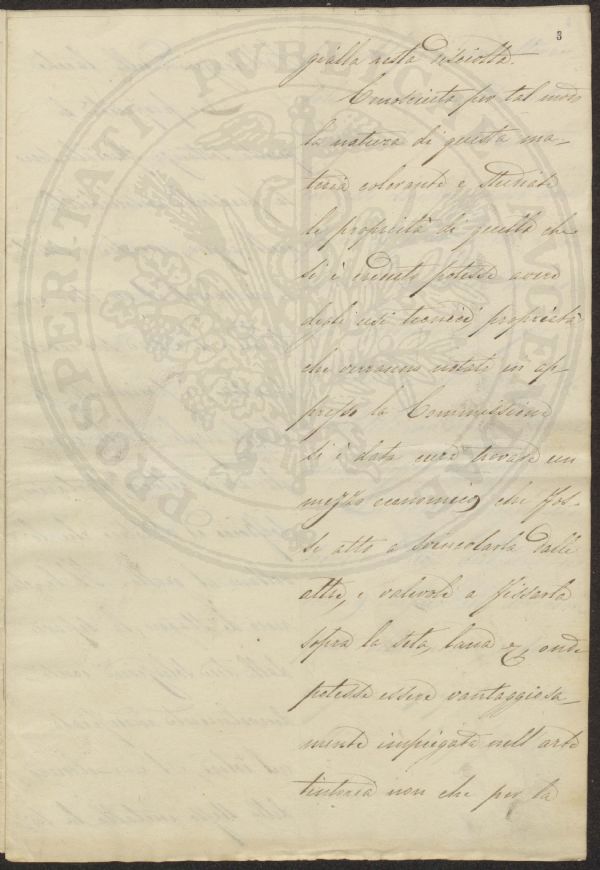 3
gialla resta disciolta.
Conosciuta per tal modo
la natura di questa ma-
teria colorante e studiate
le proprietà di quella che
si è creduto potesse avere
degli usi tecnici proprietà
che verranno notate in ap-
presso la Commissione
si è data cura trovare un
mezzo economico che fos-
se atto a svincolarla dalle
altre, e valevole a fissarla
sopra la seta, lana &, onde
potesse essere vantaggiosa-
mente impiegata nell'arte
tintoria non che per la
PROSPERITATI PVBLICAE AVGENDAE